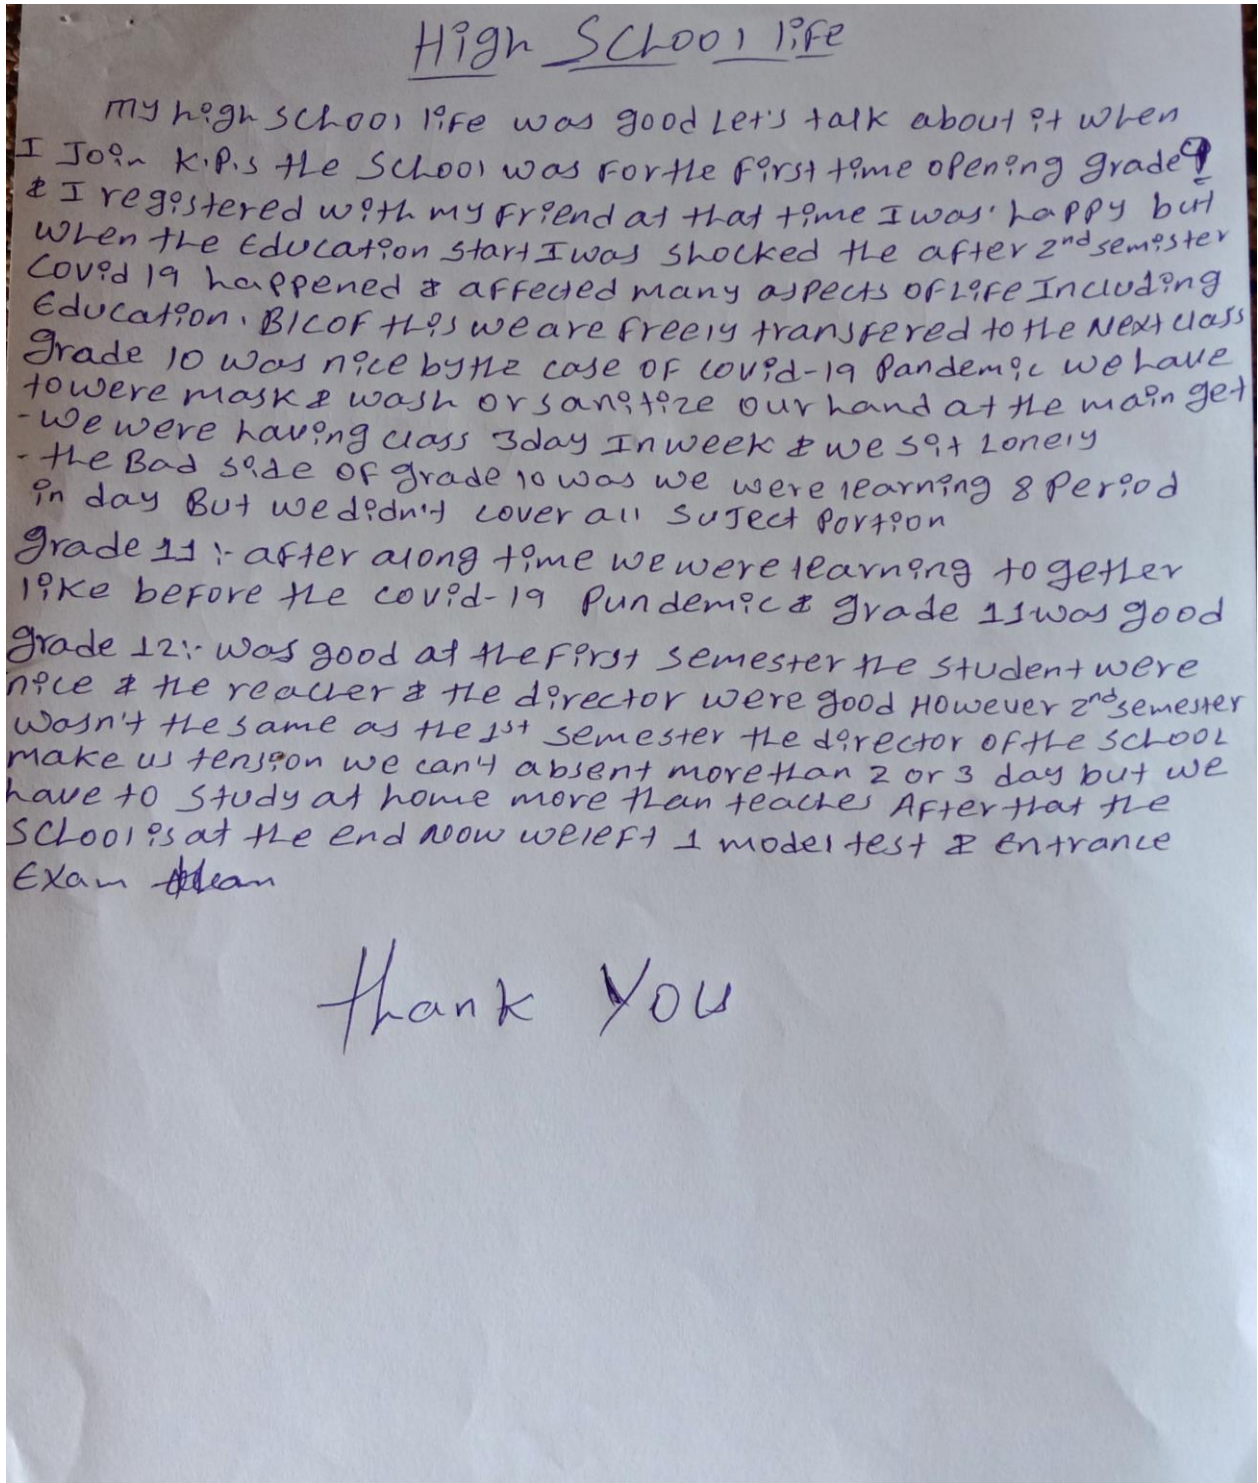 High School life
my high school life was good Let's talk about it when
I Join K.P.s the School was For the First time opening grade 9
& I registered with my Friend at that time I was happy but
when the Education start I was shocked the after 2nd semester
Covid 19 happened & affected many aspects of Life Including
Education. B/C OF this we are freely transfered to the Next class
grade 10 was nice by the case of covid-19 Pandemic we have
to were mask & wash or sanitize our hand at the main get
- we were having class 3day In week & we sit Lonely
- the Bad side of grade 10 was we were learning 8 Period
in day But we didn't cover all suJect Portion
grade 11 :- after along time we were learning together
like before the covid-19 Pundemic & grade 11 was good
grade 12 :- was good at the First semester the student were
nice & the reacher & the director were good However 2nd semester
wasn't the same as the 1st semester the director of the school
make us tension we can't absent more than 2 or 3 day but we
have to study at home more than teaches After that the
School is at the end Now we left 1 model test & Entrance
Exam
thank You